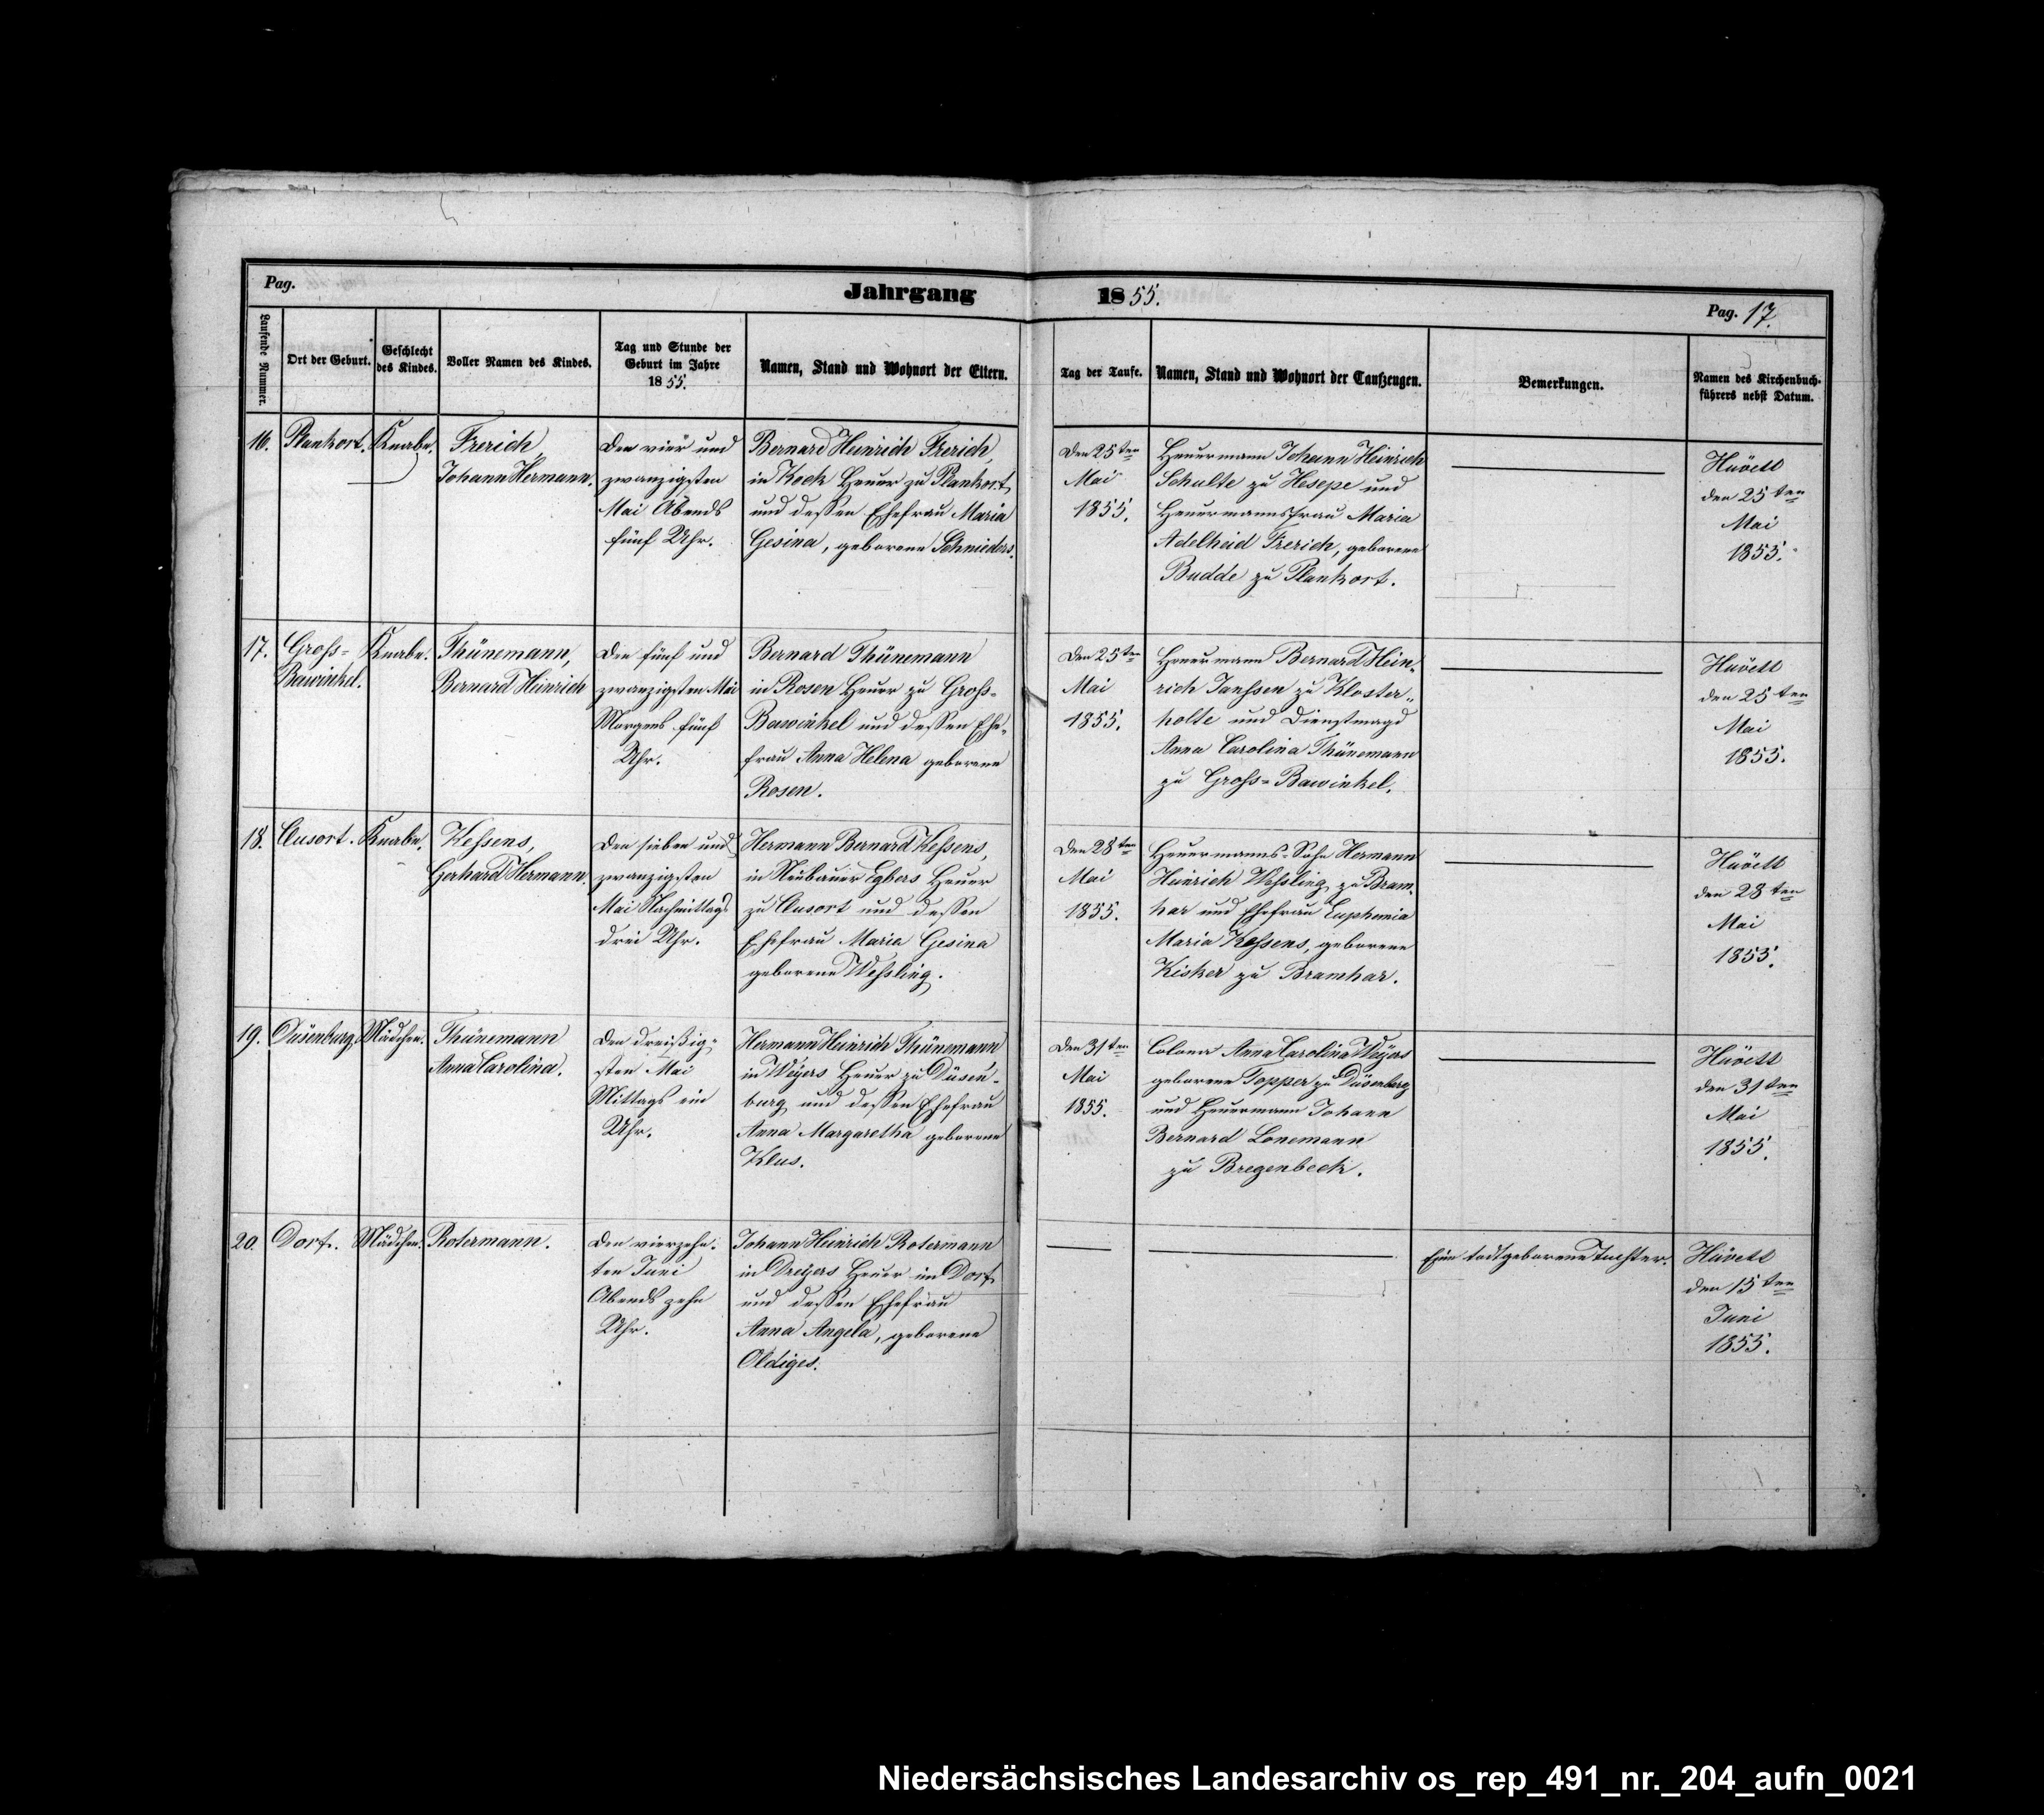 Pag.
Jahrgang 1855.
Pag. 17.
Laufende Nummer.
Ort der Geburt.
Geschlecht
des Kindes.
Voller Namen des Kindes.
Tag und Stunde der
Geburt im Jahre
1855.
Namen, Stand und Wohnort der Eltern.
Tag der Taufe.
Namen, Stand und Wohnort der Taufzeugen.
Bemerkungen.
Namen des Kirchenbuch-
führers nebst Datum.
16.
Plankort.
Knabe.
Frerich,
Johann Hermann.
Den vier und
zwanzigsten
Mai Abends
fünf Uhr.
Bernard Heinrich Frerich,
in Kock Heuer zu Plankort
und dessen Ehefrau Maria
Gesina, geborene Schnieders.
Den 25ten
Mai
1855.
Heuermann Johann Heinrich
Schulte zu Hesepe und
Heuermannsfrau Maria
Adelheid Frerich, geborene
Budde zu Plankort.
Hüvett
den 25ten
Mai
1855.
17.
Gross=
Bawinkel.
Knabe.
Thünemann,
Bernard Heinrich
Den fünf und
zwanzigsten Mai
Morgens fünf
Uhr.
Bernard Thünemann
in Rosen Heuer zu Gross=
Bawinkel und dessen Ehe-
frau Anna Helena geborene
Rosen.
Den 25ten
Mai
1855.
Heuermann Bernard Hein-
rich Janssen zu Kloster-
holte und Dienstmagd
Anna Carolina Thünemann
zu Gross=Bawinkel.
Hüvett
den 25ten
Mai
1855.
18.
Clusort.
Knabe.
Kessens,
Gerhard Hermann.
Den sieben und
zwanzigsten
Mai Nachmittags
drei Uhr.
Hermann Bernard Kessens,
in Neubauer Egbers Heuer
zu Clusort und dessen
Ehefrau Maria Gesina
geborene Wessling.
Den 28ten
Mai
1855.
Heuermanns=Sohn Hermann
Heinrich Wessling zu Bram-
har und Ehefrau Euphemia
Maria Kessens, geborene
Kisker zu Bramhar.
Hüvett
den 28ten
Mai
1855.
19.
Düsenburg
Mädchen.
Thünemann
Anna Carolina.
Den dreißig-
sten Mai
Mittags ein
Uhr.
Hermann Heinrich Thünemann
in Weÿers Heuer zu Düsen-
burg und dessen Ehefrau
Anna Margaretha geborene
Klus.
Den 31ten
Mai
1855.
Colona Anna Carolina Weÿers
geborene Topper zu Düsenburg
und Heuermann Johann
Bernard Lonemann
zu Bregenbeck.
Hüvett
den 31ten
Mai
1855.
20.
Dorf.
Mädchen.
Rotermann.
Den vierzehn-
ten Juni
Abends zehn
Uhr.
Johann Heinrich Rotermann
in Dreÿers Heuer im Dorf
und dessen Ehefrau
Anna Angela, geborene
Oldiges.
Eine todtgeborene Tochter.
Hüvett
den 15ten
Juni
1855.
Niedersächsisches Landesarchiv os_rep_491_nr._204_aufn_0021